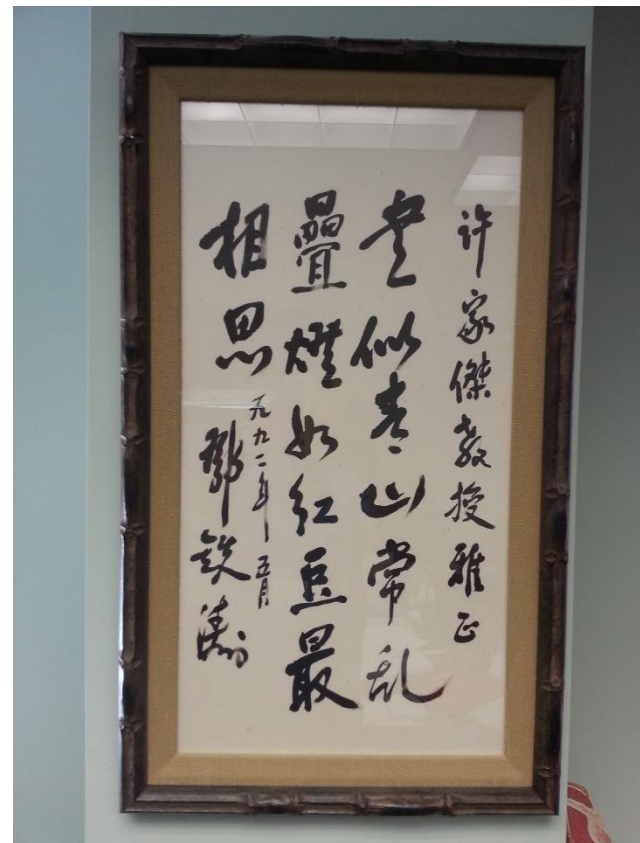 许家傑教授雅正
书似青山常乱
疊燈如红豆最
相思
一九九二年五月
鄧鉄涛